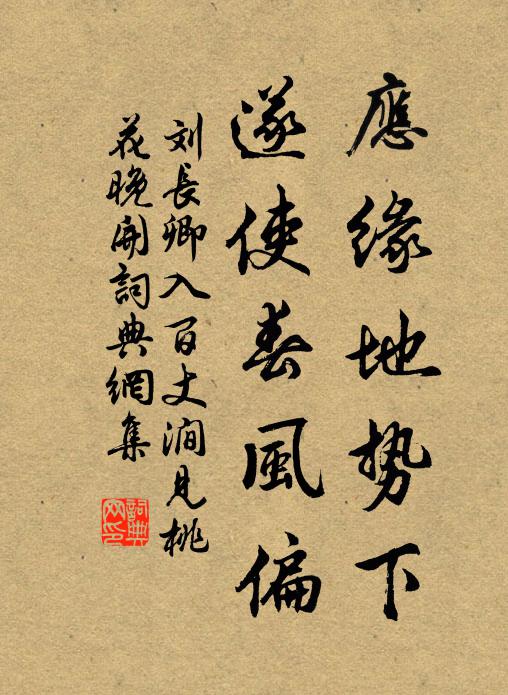 應緣地势下
遂使春風偏
刘長卿入百丈澗見桃
花晚開詞典網集
詞典
网印